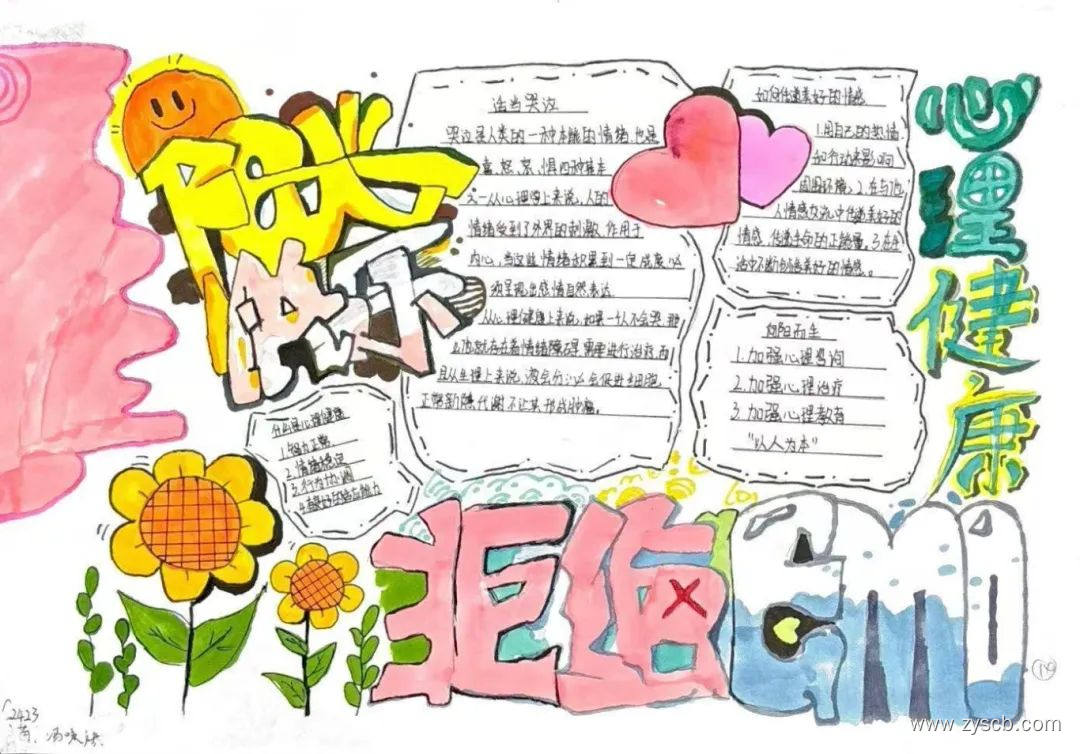 阳光
快乐
适当哭泣
哭泣是人类的一种本能的情绪,也是
喜、怒、哀、惧四种基本
之一从心理学上来说,人的
情绪受到了外界的刺激,作用于
内心,当这些情绪积累到一定成度,必
须呈现出感情自然表达
从心理健康上来说,如果一个人不会哭,那
么他就存在着情绪障碍,需要进行治疗,而
且从生理上来说,液会分泌会促进细胞
正常新陈代谢不让其形成肿瘤。
如何传递美好的情感
1.用自己的热情
和行动来影响
周围环境。2.在与他
人情感交流中传递美好的
情感,传递生命的正能量。3.在生
活中不断创造美好的情感。
向阳而生
1.加强心理咨询
2.加强心理治疗
3.加强心理教育
"以人为本"
什么是心理健康
1.智力正常、
2.情绪稳定
3.行为协调
4.良好的适应能力
心理健康
拒绝EMO
2423
www.zyscb.com